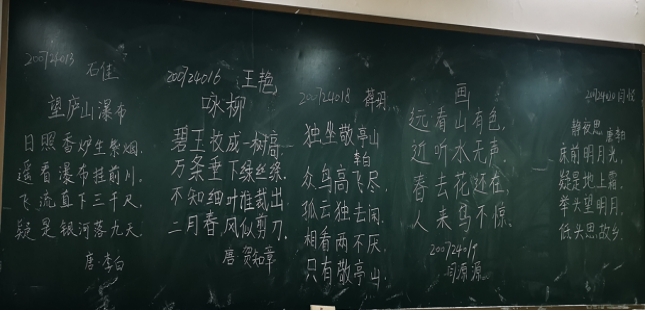 20072４013 石佳
望庐山瀑布
日照香炉生紫烟,
遥看瀑布挂前川,
飞流直下三千尺,
疑是银河落九天.
唐·李白
200724016 王艳
咏柳
碧玉妆成一树高,
万条垂下绿丝绦,
不知细叶谁裁出,
二月春风似剪刀.
唐·贺知章
200724018 薛玥
独坐敬亭山
李白
众鸟高飞尽,
孤云独去闲,
相看两不厌,
只有敬亭山.
画
远看山有色,
近听水无声.
春去花还在,
人来鸟不惊.
200724019
闫原源
静夜思 唐·李白
床前明月光,
疑是地上霜.
举头望明月,
低头思故乡.